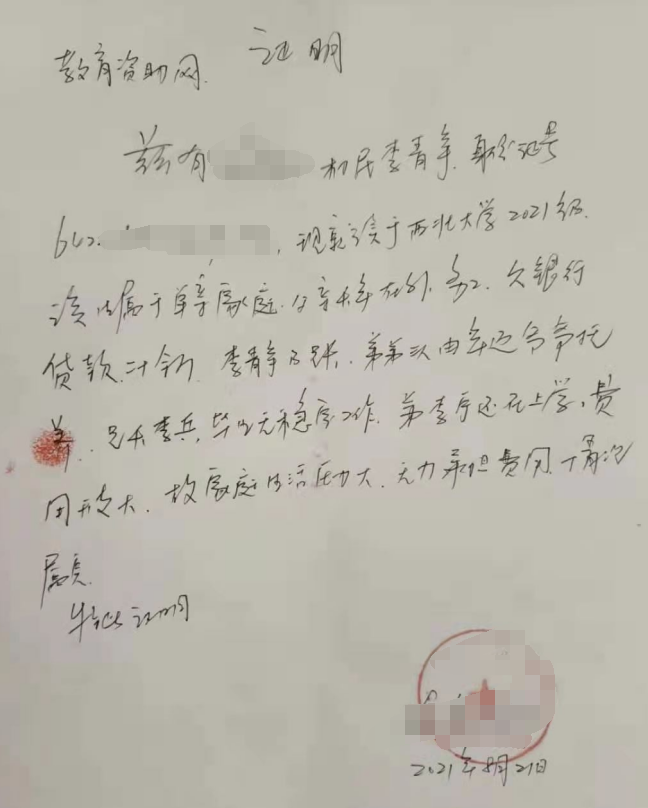 证明
教育资助网
兹有 村民李青年,身份证号
642 ,现就读于西北大学2021级.
该生属于单亲家庭.父亲长年在外务工.欠银行
贷款二十余万.李青年及兄长、弟弟 由年迈爷爷托
养.兄长李兵,毕业无稳定工作.弟李 还在上学,费
用开支大.故家庭生活压力大.无力承担费用.情况
属实.
特此证明
2021年8月21日